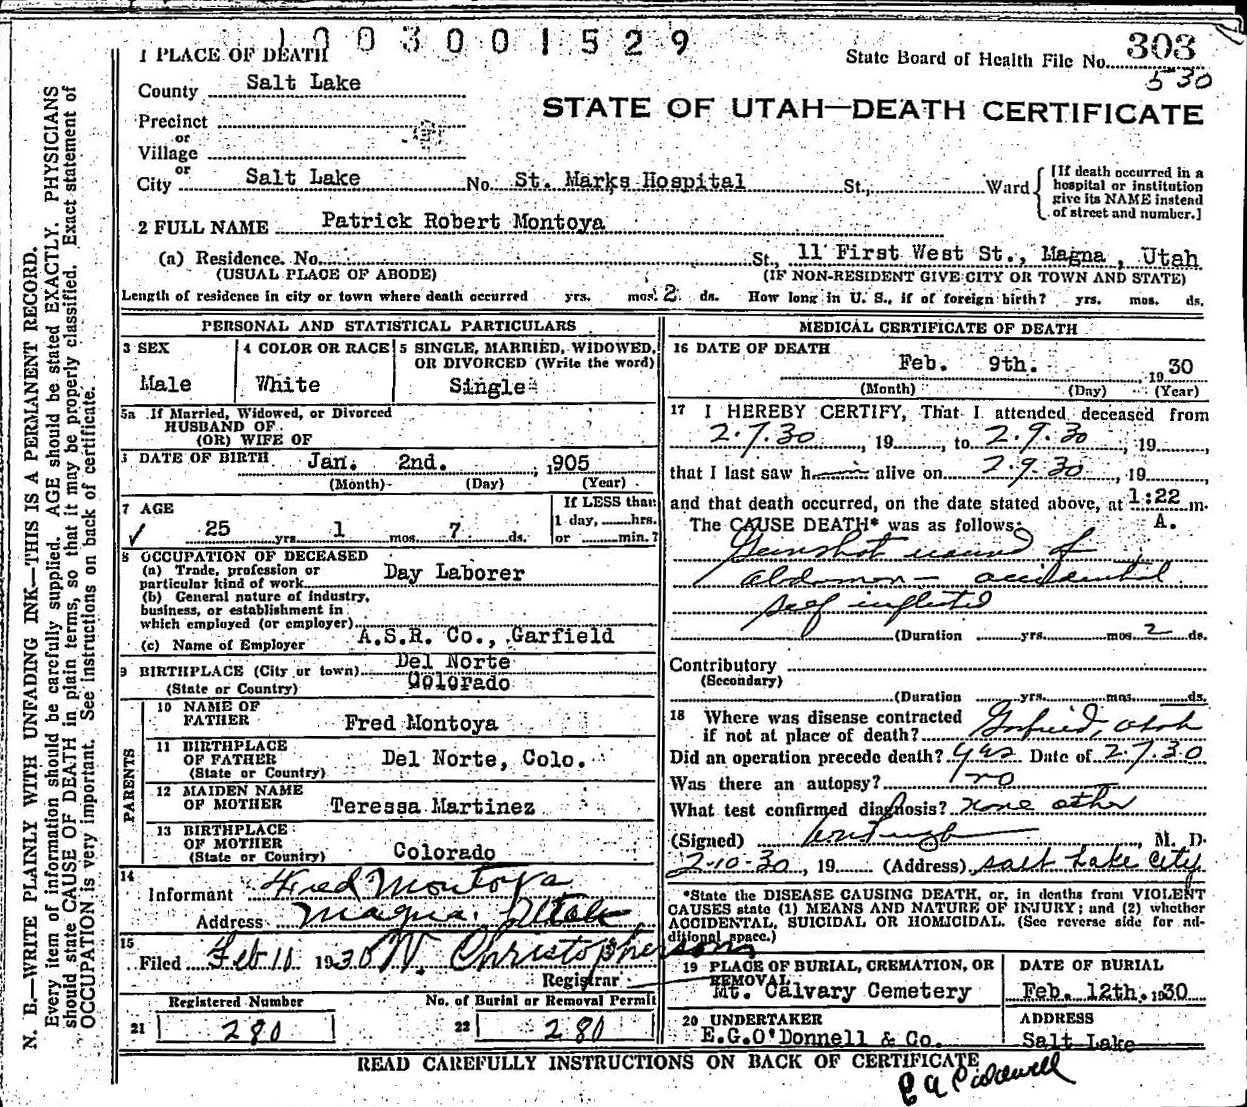 1003001529
1 PLACE OF DEATH
State Board of Health File No. 303
530
County Salt Lake
STATE OF UTAH—DEATH CERTIFICATE
Precinct
or
Village
or
City Salt Lake No. St. Marks Hospital St., Ward
[If death occurred in a
hospital or institution
give its NAME instead
of street and number.]
2 FULL NAME Patrick Robert Montoya
(a) Residence. No. St., 11 First West St., Magna, Utah
(USUAL PLACE OF ABODE) (IF NON-RESIDENT GIVE CITY OR TOWN AND STATE)
Length of residence in city or town where death occurred yrs. mos. 2 ds. How long in U. S., if of foreign birth? yrs. mos. ds.
PERSONAL AND STATISTICAL PARTICULARS
3 SEX
Male
4 COLOR OR RACE
White
5 SINGLE, MARRIED, WIDOWED,
OR DIVORCED (Write the word)
Single
5a If Married, Widowed, or Divorced
HUSBAND OF
(OR) WIFE OF
DATE OF BIRTH Jan. 2nd. , 1905
(Month) (Day) (Year)
7 AGE
25 yrs. 1 mos. 7 ds.
If LESS than
1 day, hrs.
or min.?
8 OCCUPATION OF DECEASED
(a) Trade, profession or
particular kind of work Day Laborer
(b) General nature of industry,
business, or establishment in
which employed (or employer)
(c) Name of Employer A.S.R. Co., Garfield
9 BIRTHPLACE (City or town) Del Norte
(State or Country) Colorado
PARENTS
10 NAME OF
FATHER Fred Montoya
11 BIRTHPLACE
OF FATHER Del Norte, Colo.
(State or Country)
12 MAIDEN NAME
OF MOTHER Teressa Martinez
13 BIRTHPLACE
OF MOTHER
(State or Country) Colorado
14
Informant Fred Montoya
Address Magna. Utah
15
Filed Feb 11 1930 N. Christophersons
Registrar
Registered Number
21 280
No. of Burial or Removal Permit
22 280
MEDICAL CERTIFICATE OF DEATH
16 DATE OF DEATH
Feb. 9th. , 1930
(Month) (Day) (Year)
17 I HEREBY CERTIFY, That I attended deceased from
2.7.30, 19 , to 2.9.30, 19 ,
that I last saw h im alive on 2.9.30, 19 ,
and that death occurred, on the date stated above, at 1:22 m.
The CAUSE DEATH* was as follows: A.
Gunshot wound of
abdomen - accidental
self inflicted
(Duration yrs. mos. 2 ds.
Contributory
(Secondary)
(Duration yrs. mos. ds.
18 Where was disease contracted
if not at place of death? Garfield, Utah
Did an operation precede death? yes Date of 2.7.30
Was there an autopsy? no
What test confirmed diagnosis? none other
(Signed) , M. D.
2-10-30, 19 (Address) Salt Lake City
*State the DISEASE CAUSING DEATH, or, in deaths from VIOLENT
CAUSES state (1) MEANS AND NATURE OF INJURY; and (2) whether
ACCIDENTAL, SUICIDAL OR HOMICIDAL. (See reverse side for ad-
ditional space.)
19 PLACE OF BURIAL, CREMATION, OR
REMOVAL
Mt. Calvary Cemetery
DATE OF BURIAL
Feb. 12th. 1930
20 UNDERTAKER
E.G.O'Donnell & Co.
ADDRESS
Salt Lake
READ CAREFULLY INSTRUCTIONS ON BACK OF CERTIFICATE
N. B.—WRITE PLAINLY WITH UNFADING INK—THIS IS A PERMANENT RECORD.
Every item of information should be carefully supplied. AGE should be stated EXACTLY. PHYSICIANS
should state CAUSE OF DEATH in plain terms, so that it may be properly classified. Exact statement of
OCCUPATION is very important. See instructions on back of certificate.